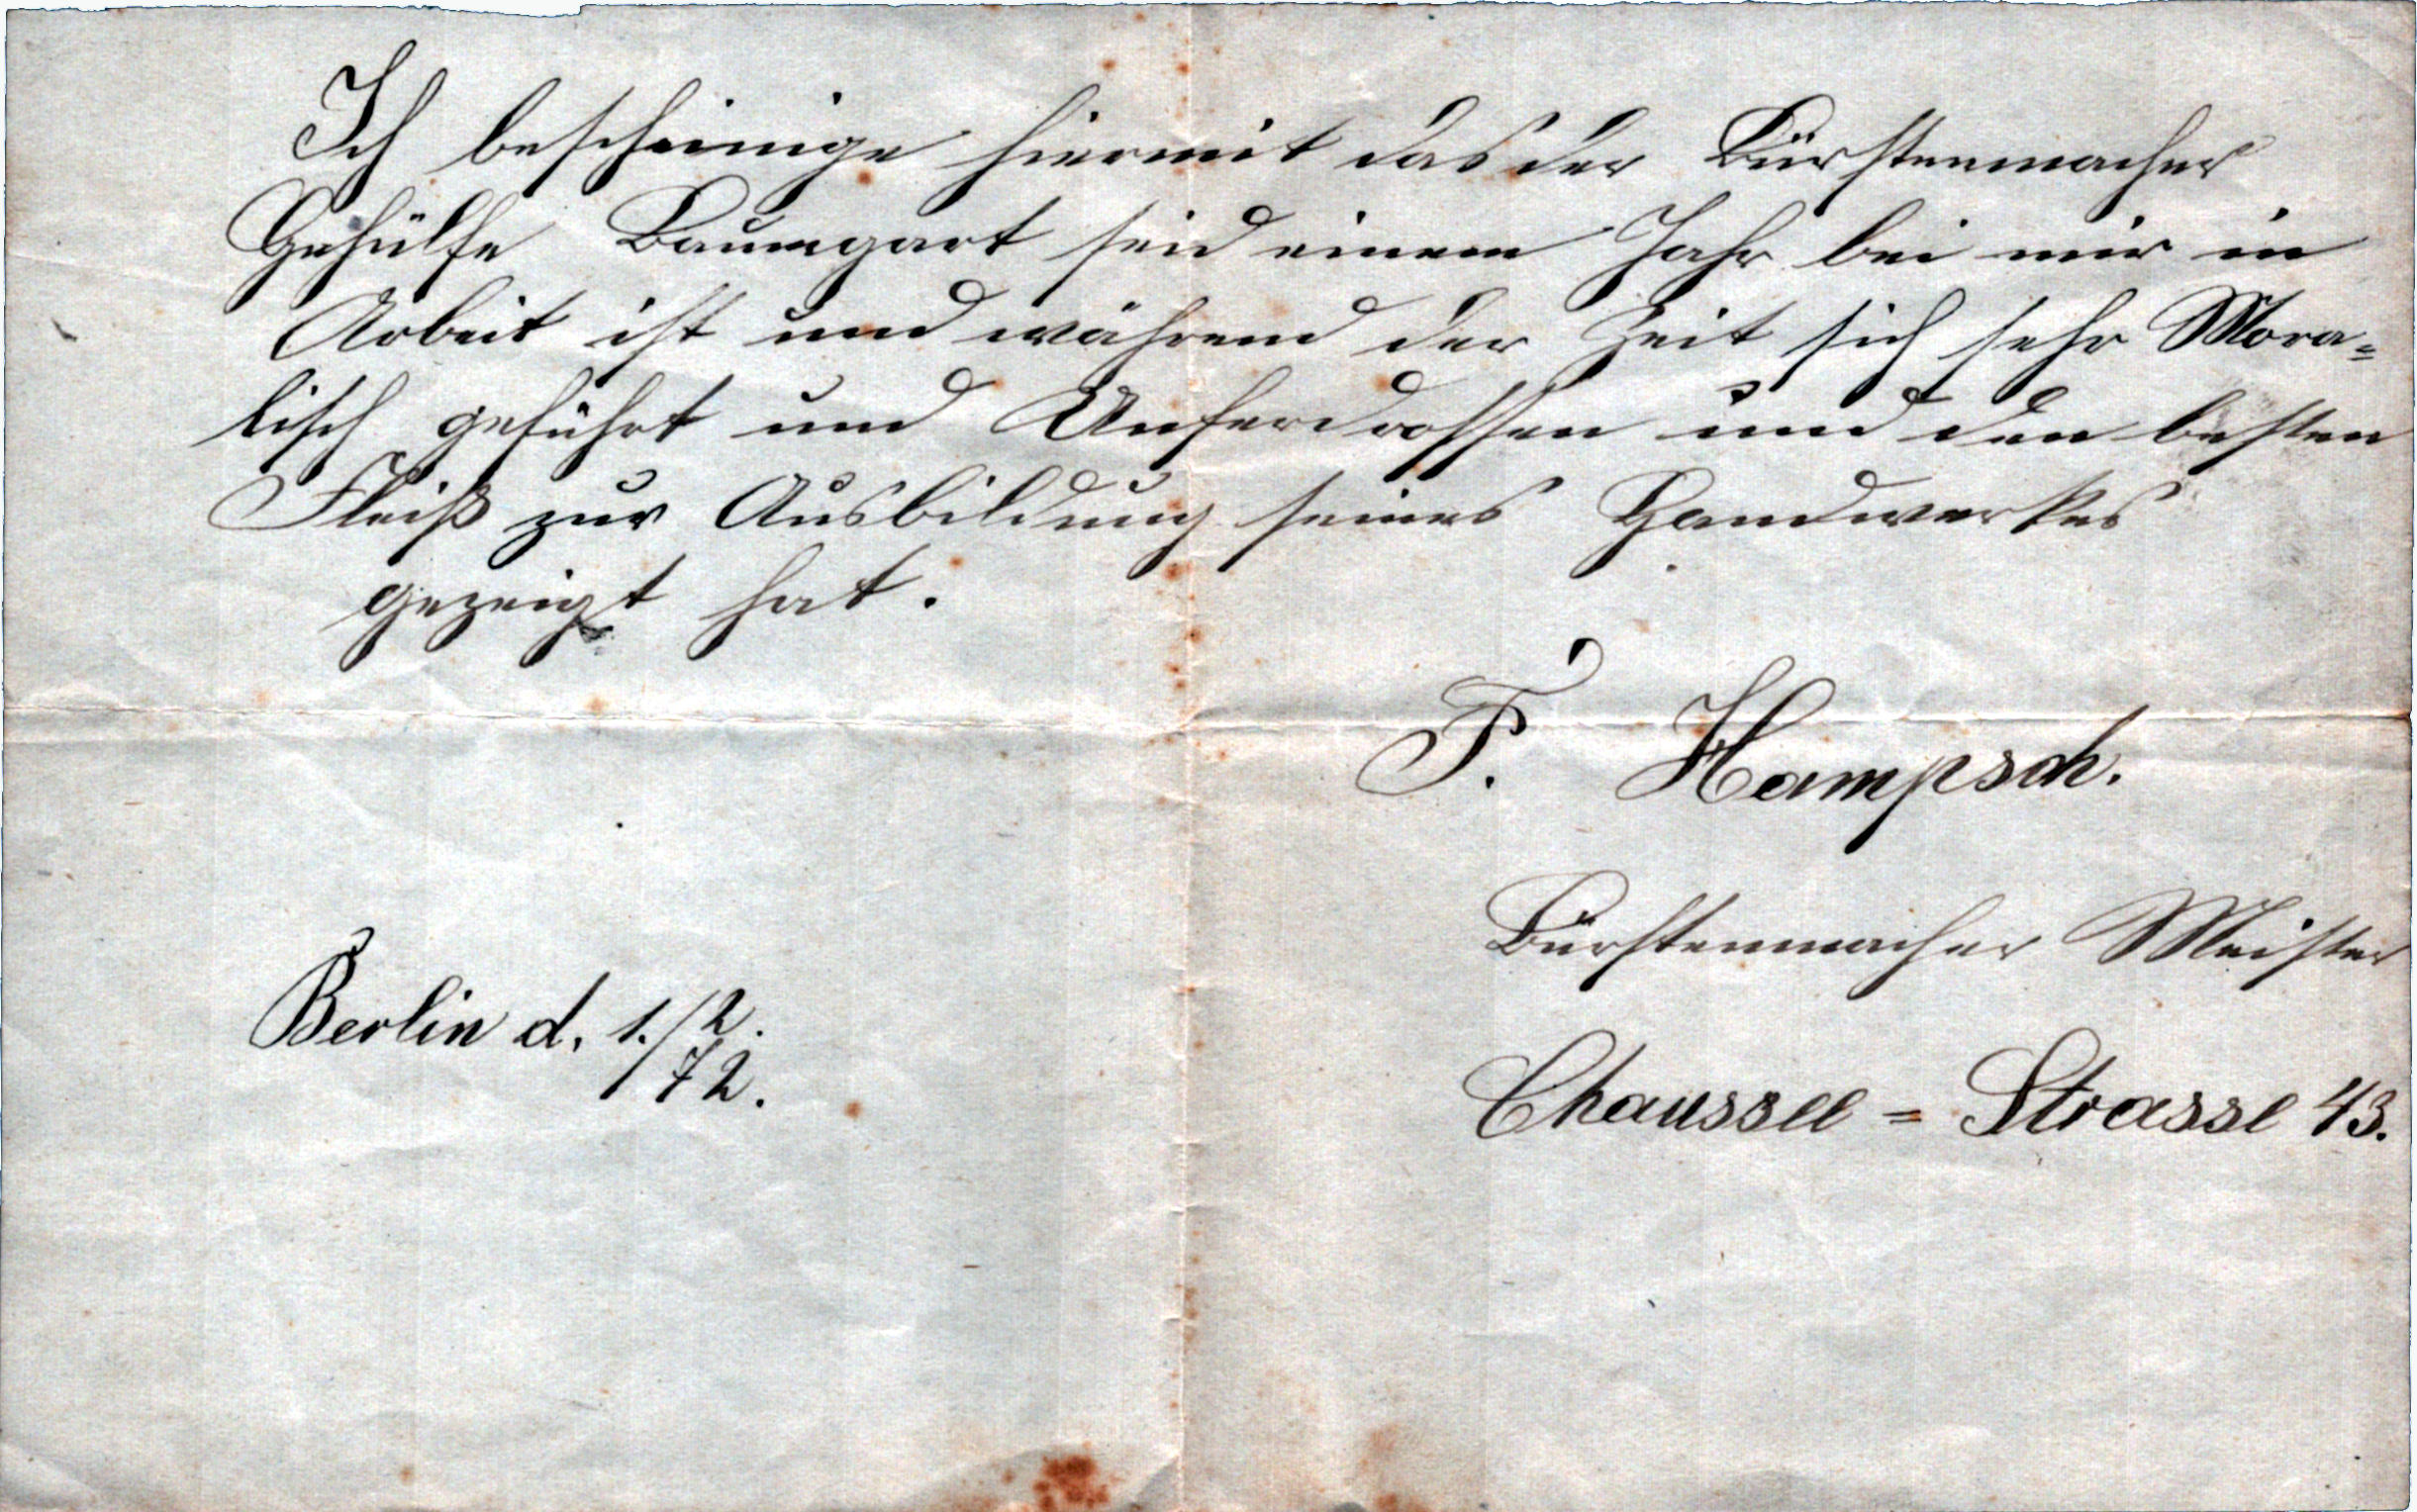 Ich bescheinige hiermit das der Bürstenmacher
Gehülfe Baumgart seid einem Jahr bei mir in
Arbeit ist und während der Zeit sich sehr Mora=
lisch geführt und Unferdrossen und den besten
Fleiß zur Ausbildung seines Handwerkes
gezeigt hat.
F. Hampsch.
Bürstenmacher Meister
Berlin d. 1./2.
72.
Chaussee=Strasse 43.